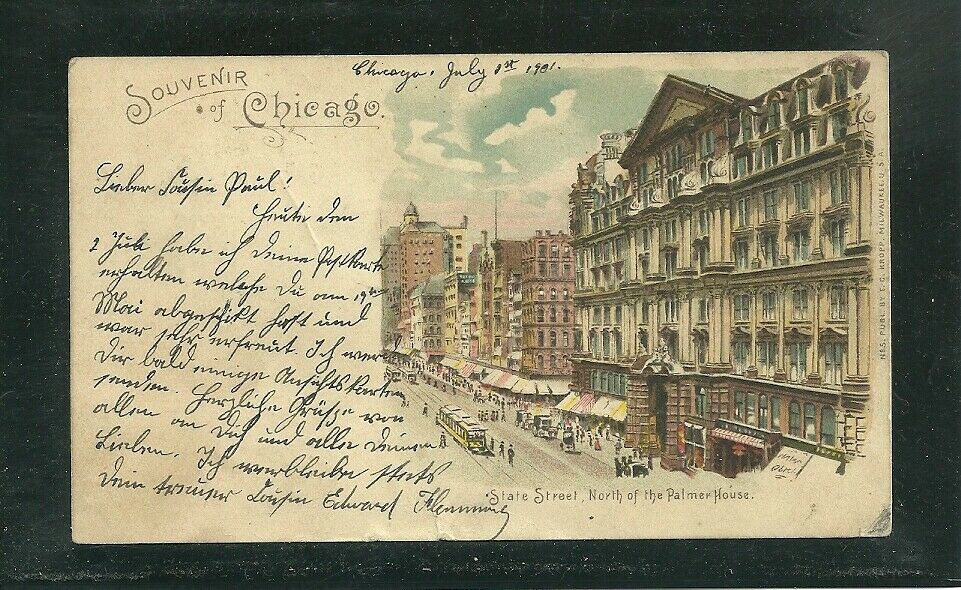 Souvenir
of Chicago.
Chicago, July 1st 1901.
Lieber Cousin Paul!
Heute den
2 Juli habe ich Deine Postkarte
erhalten welche Du am 19ten
Mai abgeschikt hast und
war sehr erfreut. Ich werde
Dir bald einige Ansichtskarten
senden. Herzliche Grüsse von
allen an Dich und alle Deinen
Lieben. Ich verbleibe stets
Dein treuer Cousin Edward
State Street, North of the Palmer House.
No 5. PUBL. BY E.C. KROPP, MILWAUKEE, U.S.A.